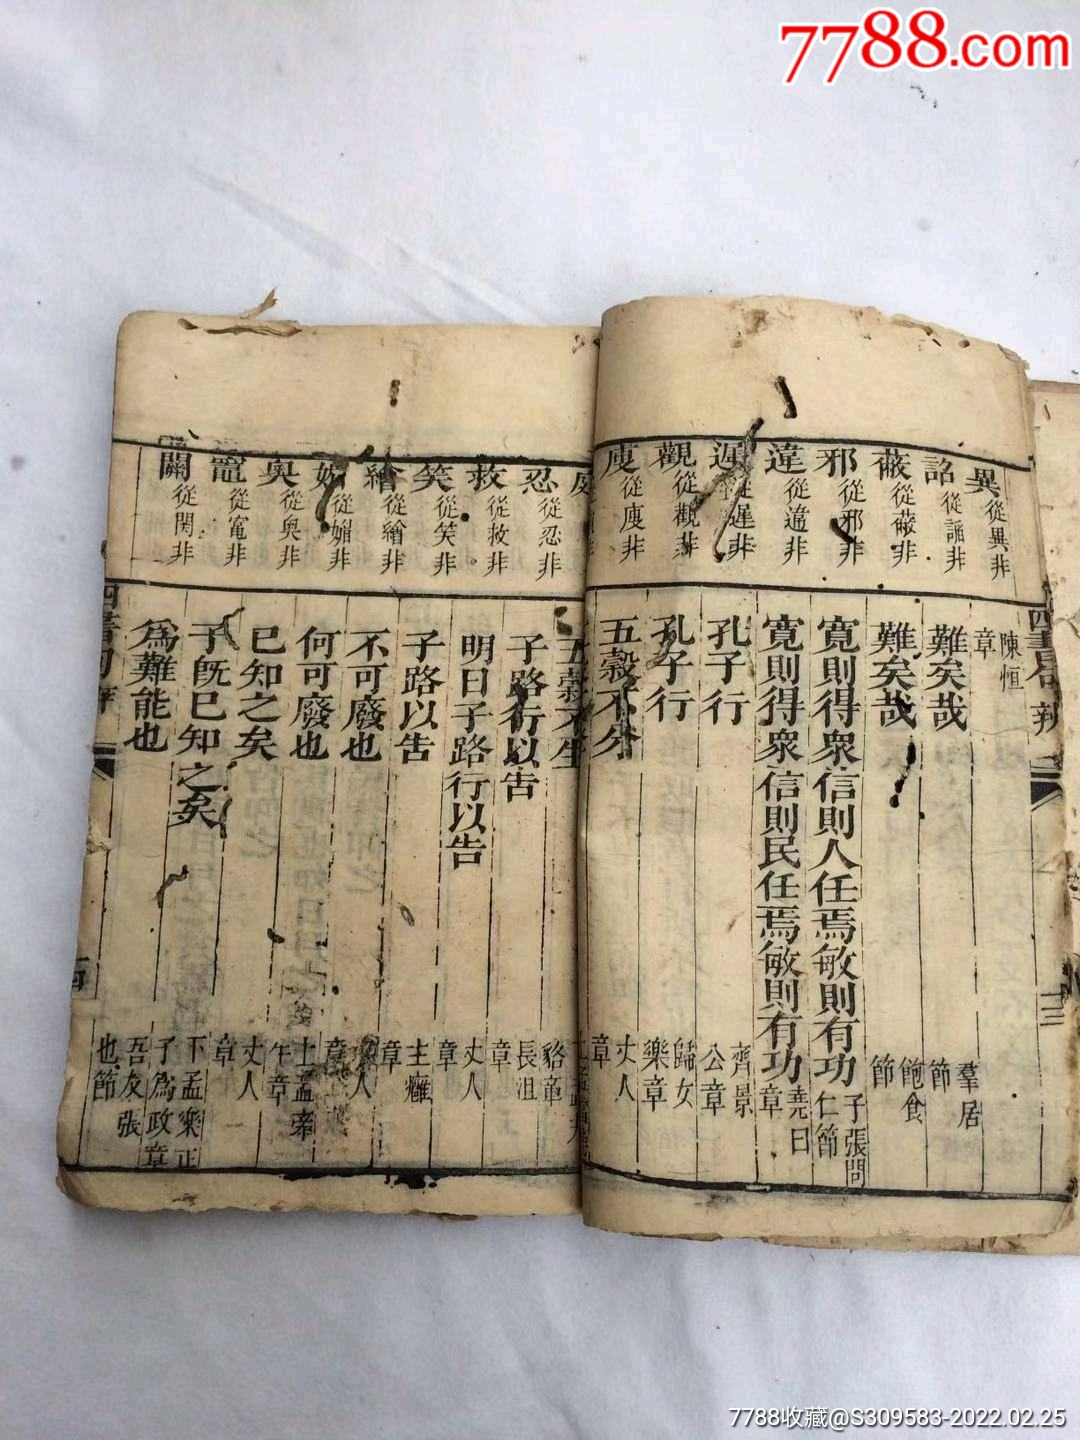 7788.com
異從異非
諂從謟非
蔽從蔽非
邪從邪非
違從違非
遲從遲非
觀從觀非
庾從庾非
四書句辨
三
陳恒章
難矣哉 羣居節
難矣哉 飽食節
寬則得衆信則人任焉敏則有功 子張問仁節
寬則得衆信則民任焉敏則有功 堯曰章
孔子行 齊景公章
孔子行 歸女樂章
五穀不分 丈人章
忍從忍非
救從救非
笑從笑非
繪從繪非
媚從媚非
奥從奥非
竈從竈非
關從関非
五穀不生 貉章
子路行以告 長沮章
明日子路行以告 丈人章
子路以告 主癰章
不可廢也 丈人章
何可廢也 上孟牽牛章
已知之矣 丈人章
子既已知之矣 下孟樂正子爲政章
爲難能也 吾友張也節
四書句辨
四
7788收藏@S309583-2022.02.25